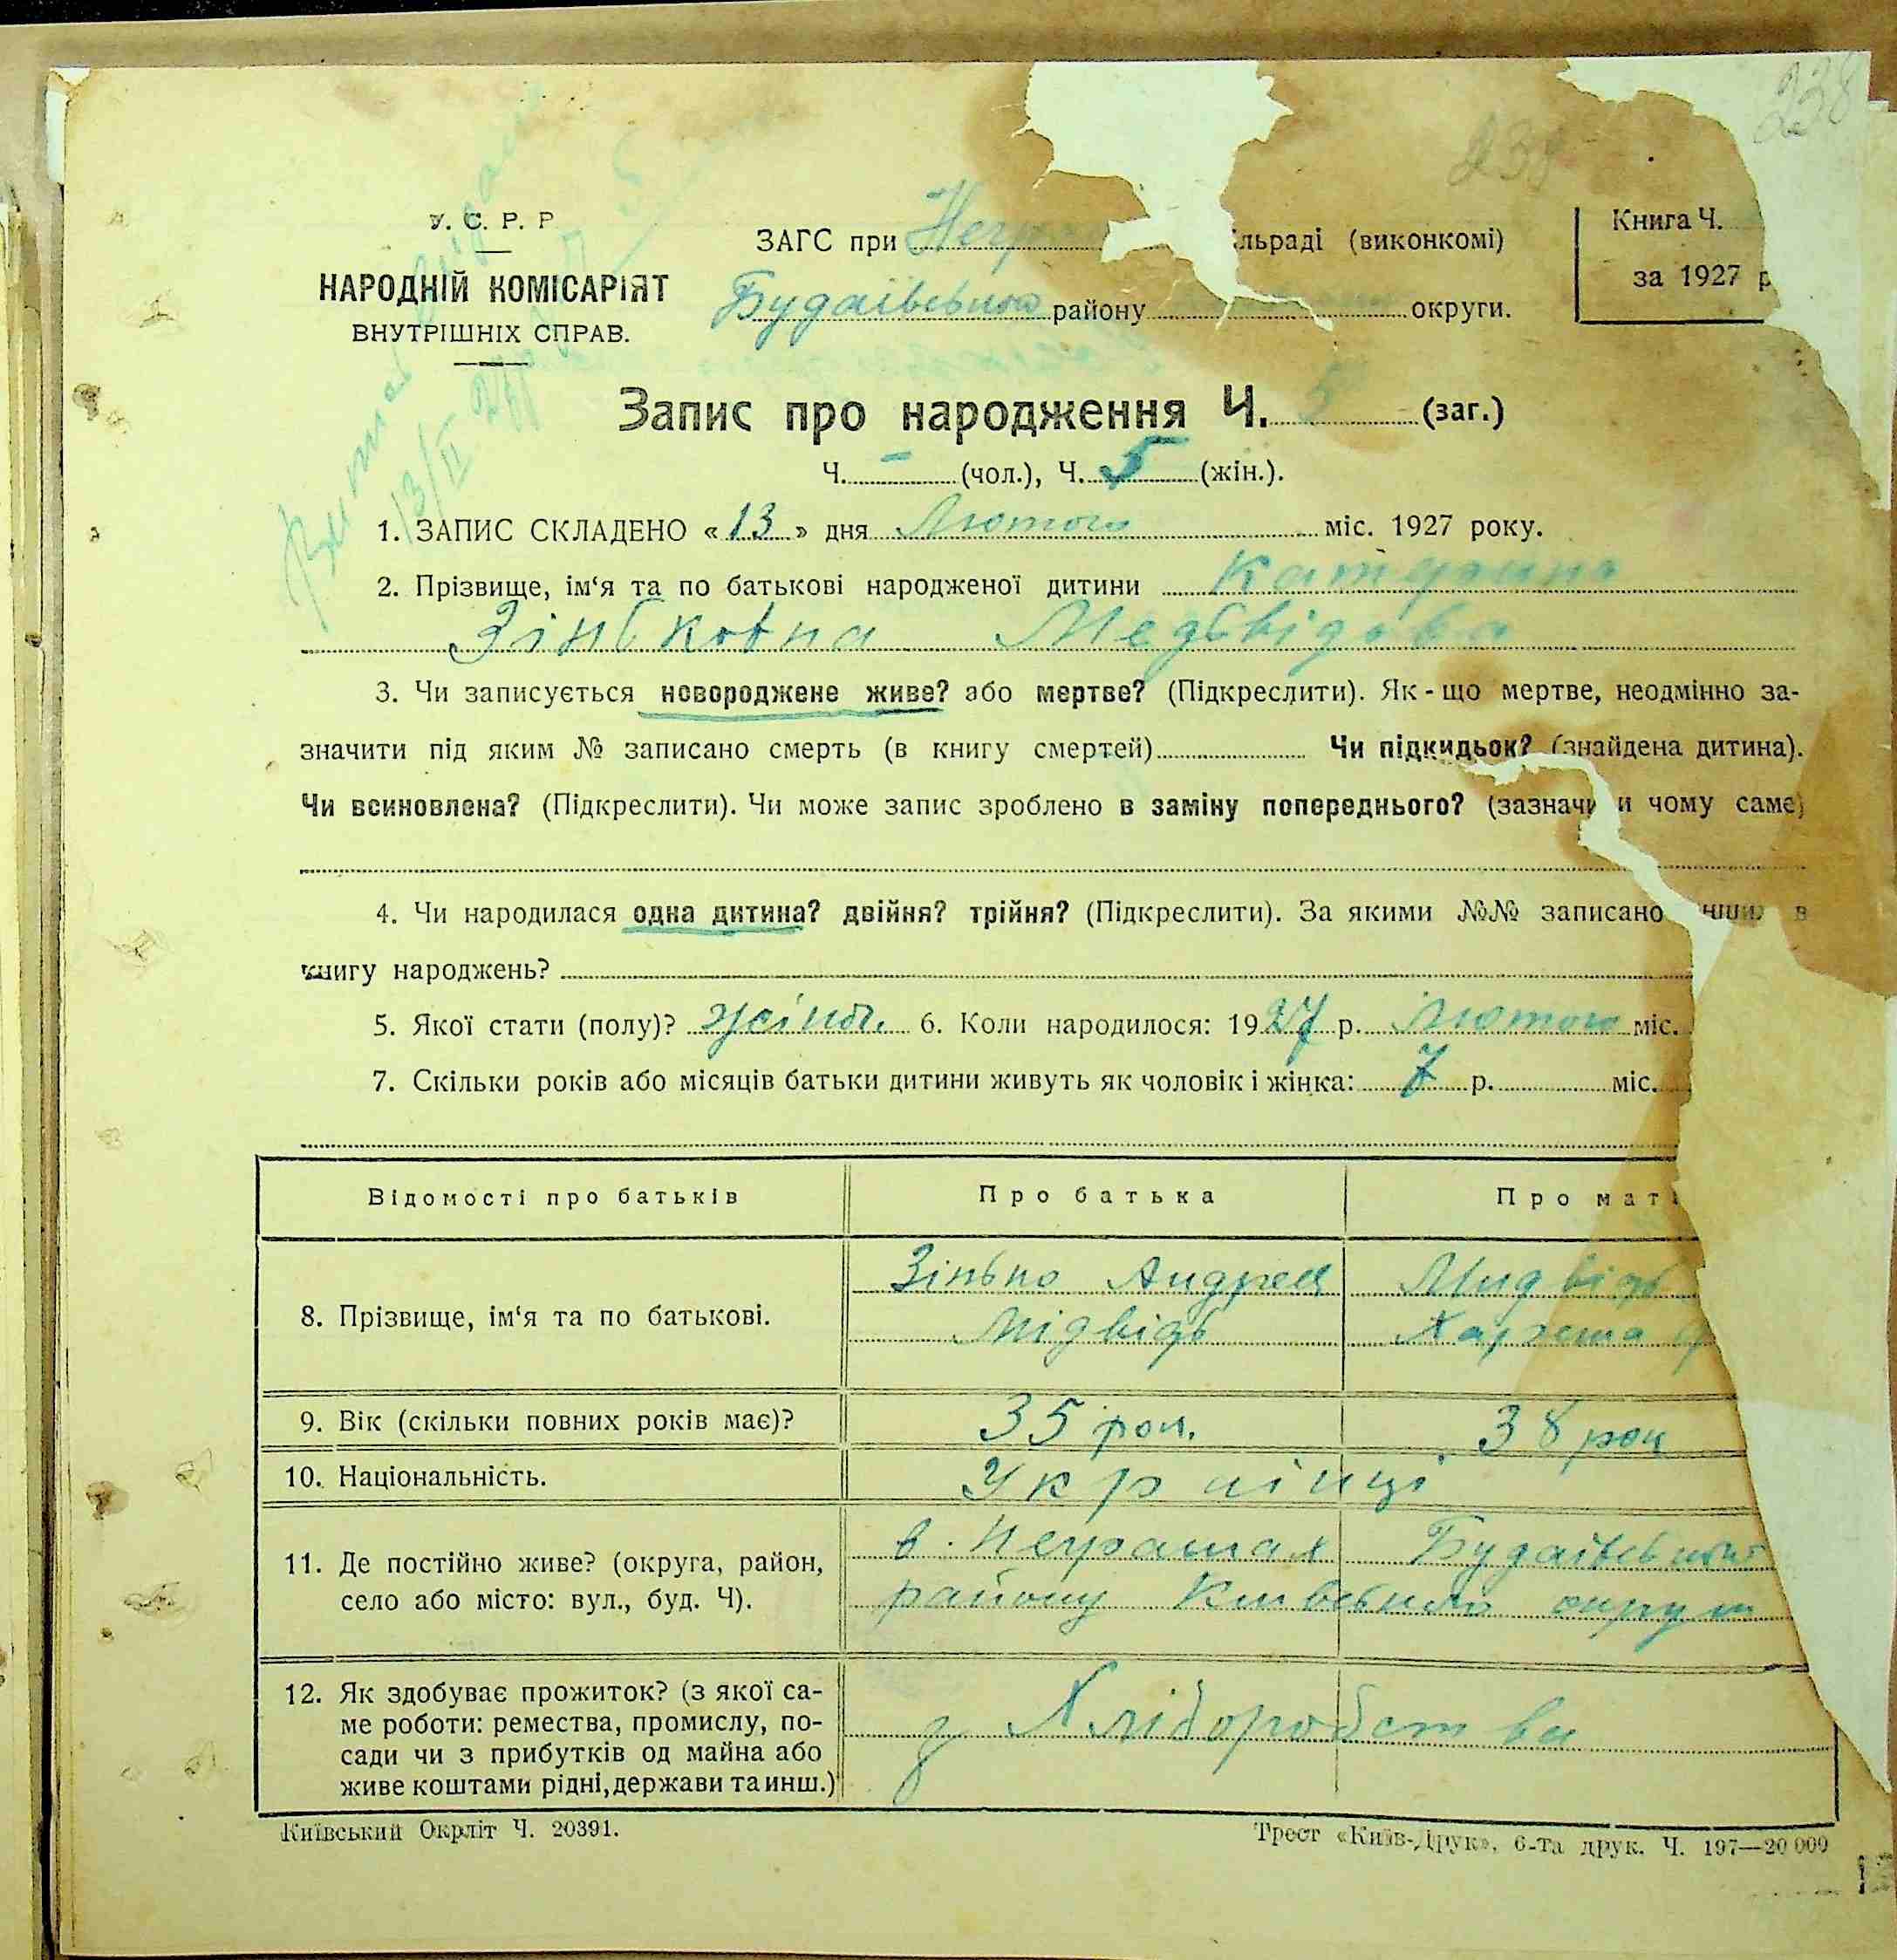 238
238
У. С. Р. Р
НАРОДНІЙ КОМІСАРІЯТ
ВНУТРІШНІХ СПРАВ.
ЗАГС при льраді (виконкомі)
Будаївського району округи.
Книга Ч.
за 1927 р
Запис про народження Ч. 5 (заг.)
Ч. - (чол.), Ч. 5 (жін.).
13/II 27
1. ЗАПИС СКЛАДЕНО «13» дня Лютого міс. 1927 року.
2. Прізвище, ім‘я та по батькові народженої дитини Катерина
Зіньковна Медьвідова
3. Чи записується новороджене живе? або мертве? (Підкреслити). Як-що мертве, неодмінно за-
значити під яким № записано смерть (в книгу смертей) Чи підкидьок? (знайдена дитина).
Чи всиновлена? (Підкреслити). Чи може запис зроблено в заміну попереднього? (зазначи и чому саме)
4. Чи народилася одна дитина? двійня? трійня? (Підкреслити). За якими №№ записано нших в
книгу народжень?
5. Якої стати (полу)? жіноч. 6. Коли народилося: 1927 р. Лютого міс.
7. Скільки років або місяців батьки дитини живуть як чоловік і жінка: 7 р. міс.
Відомості про батьків Про батька Про мат
8. Прізвище, ім‘я та по батькові.
Зінько Андрея Мидвідь
Мідвідь
9. Вік (скільки повних років має)? 35 рок. 38 рок
10. Національність. Укр аінці
11. Де постійно живе? (округа, район,
село або місто: вул., буд. Ч).
в Неграшах Будаівського
району Київського округи
12. Як здобуває прожиток? (з якої са-
ме роботи: ремества, промислу, по-
сади чи з прибутків од майна або
живе коштами рідні, держави та инш.)
з Хліборобства
Київський Окрліт Ч. 20391.
Трест «Київ-Друк», 6-та друк. Ч. 197—20 000